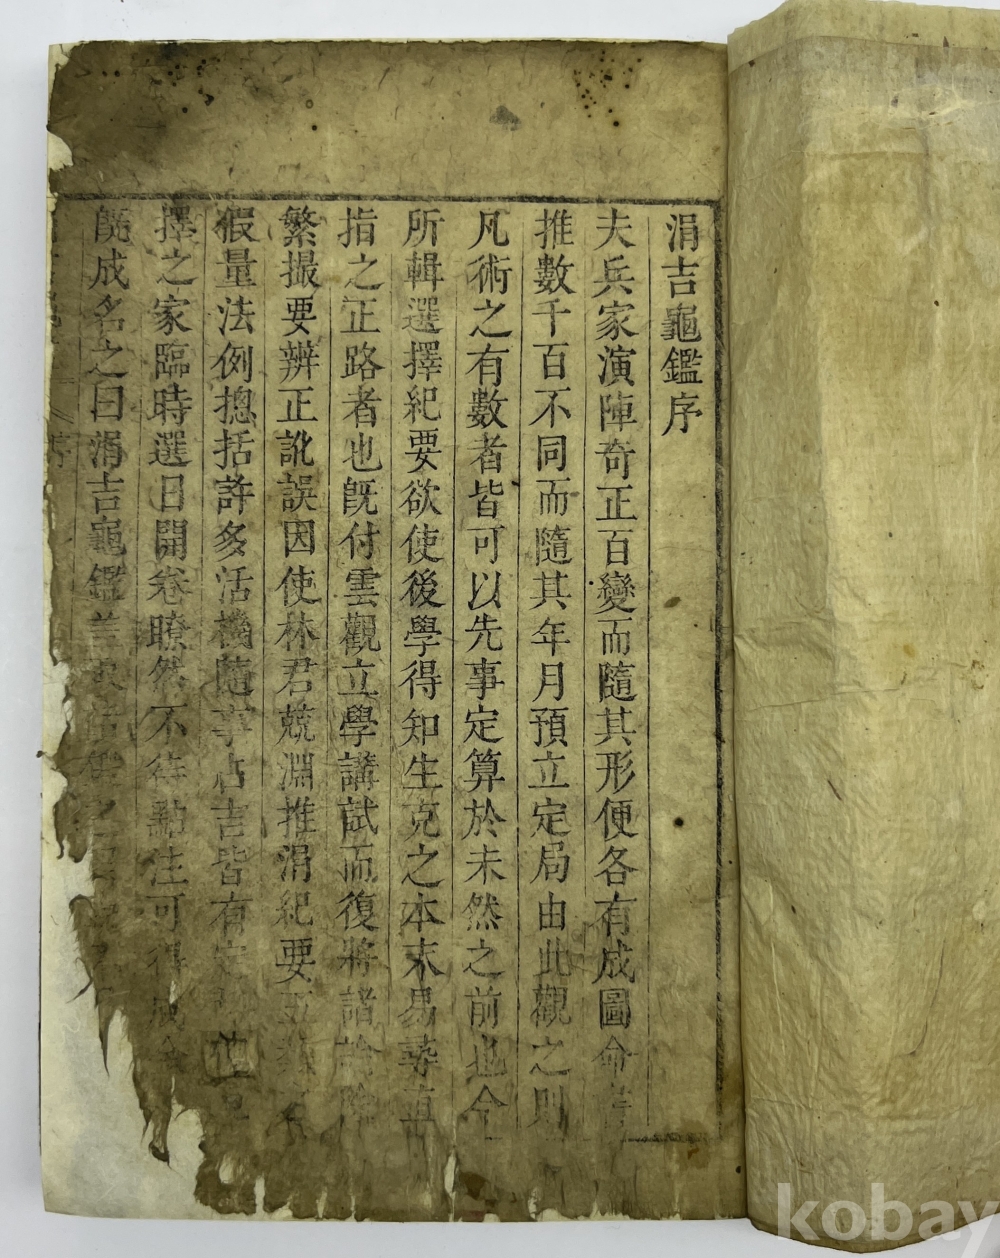 涓吉龜鑑序
夫兵家演陣奇正百變而隨其形便各有成圖命
推數千百不同而隨其年月預立定局由此觀之則
凡術之有數者皆可以先事定算於未然之前也今
所輯選擇紀要欲使後學得知生克之本末易尋直
指之正路者也旣付雲觀立學講試而復將諸
繁撮要辨正訛誤因使林君兢淵推涓紀要
假量法例摠括許多活機隨事占吉皆有定
擇之家臨時選日開卷瞭然不待點注可得
旣成名之曰涓吉龜鑑
kobay